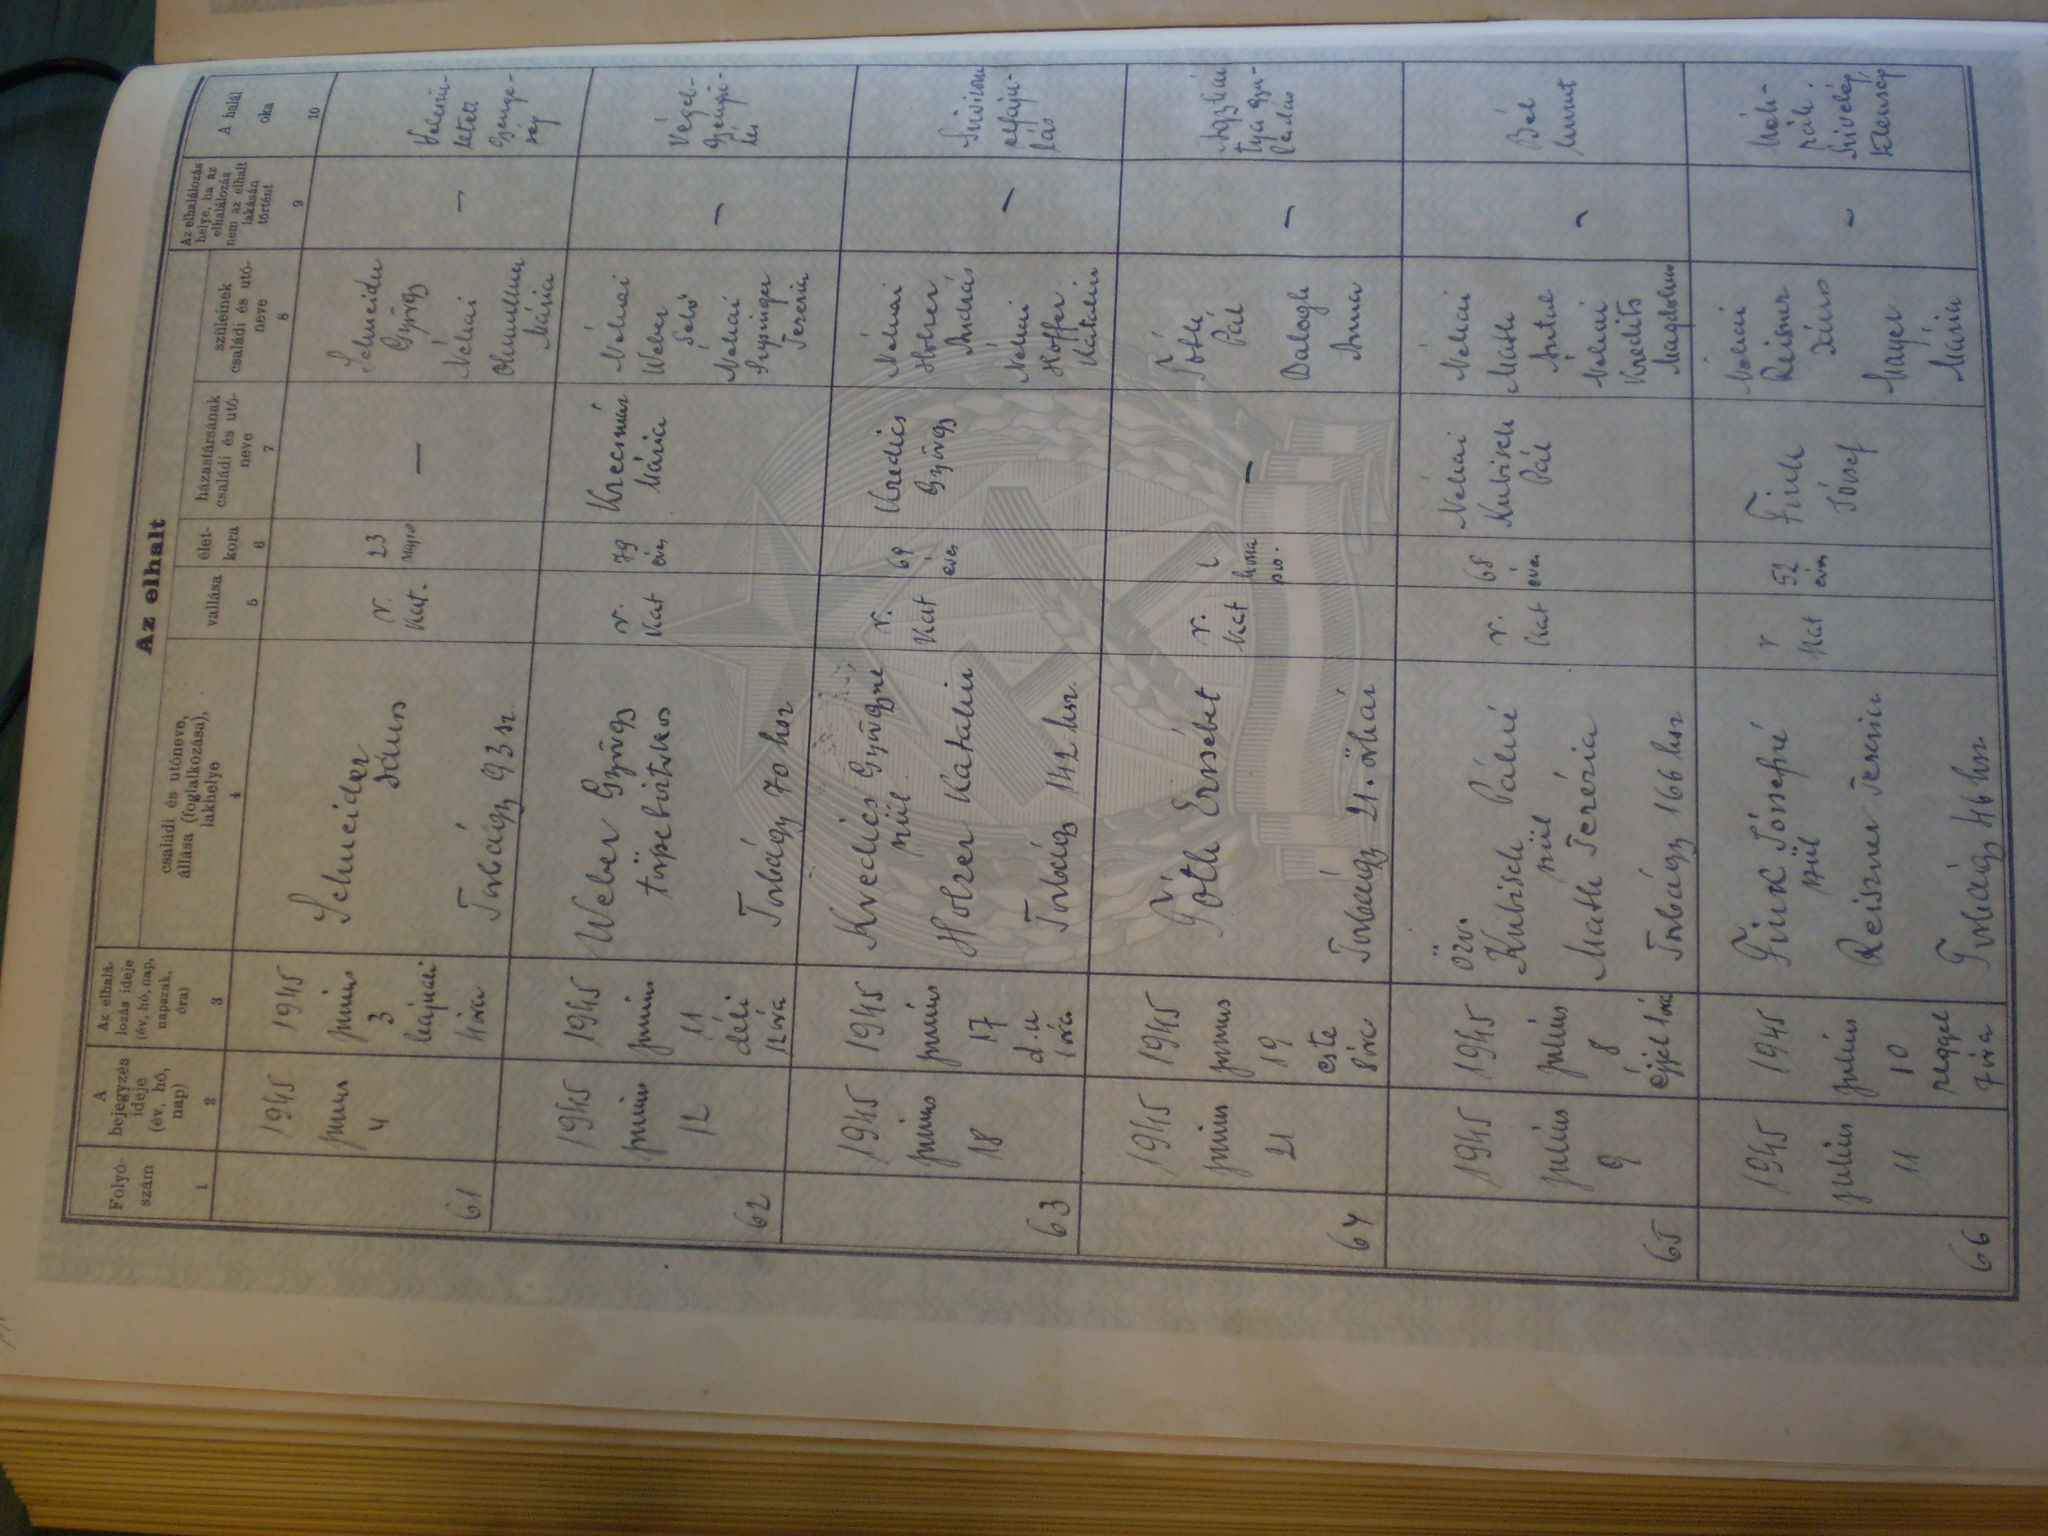 Az elhalt
Folyó-
szám
1
A
bejegyzés
ideje
(év, hó,
nap)
2
Az elhalá-
lozás ideje
(év, hó, nap,
napszak,
óra)
3
családi és utóneve,
állása (foglalkozása),
lakhelye
4
vallása
5
élet-
kora
6
házastársának
családi és utó-
neve
7
szüleinek
családi és utó-
neve
8
Az elhalálozás
helye, ha az
elhalálozás
nem az elhalt
lakásán
történt
9
A halál
oka
10
61
1945
junius
4
1945
junius
3
hajnali
4 óra
Schneider
János
Torbágy 93 sz.
r.
kat.
23
napos
—
Schneider
György
Néhai
Mária
—
Veleszü-
letett
gyenge-
ség
62
1945
junius
12
1945
junius
11
déli
12 óra
Weber György
törpebirtokos
Torbágy 70 hsz
r.
kat
79
éves
Krecsmár
Mária
Néhai
Weber
Néhai
Terézia
—
Végel-
gyengü-
lés
63
1945
junius
18
1945
junius
17
d.u
1 óra
Kredics Györgyné
szül
Holzer Katalin
Torbágy 142 hsz.
r.
kat
69
éves
Kredics
György
Néhai
Holzer
András
Néhai
Hoffer
Katalin
—
Szívizom
elfaju-
lás
64
1945
junius
21
1945
junius
19
este
8 óra
Tóth Erzsébet
Torbágy 21. őrház
r.
kat
Tóth
Pál
Balogh
Anna
—
Agyhár
tya gyu-
ladás
65
1945
julius
9
1945
julius
8
éjjel 1 óra
özv.
Kubisch Pálné
szül
Math Terézia
Torbágy 166 hsz
r.
kat
68
éves
Néhai
Kubisch
Pál
Néhai
Math
Antal
Néhai
Kredits
Magdolna
—
Bél
hurut
66
1945
julius
11
1945
julius
10
reggel
7 óra
Fink Józsefné
szül
Reiszner Terézia
Torbágy 46 hsz
r
kat
52
éves
Fink
József
Néhai
Reisner
János
Mayer
Mária
—
Méh-
rák.
Szívelég
telenség